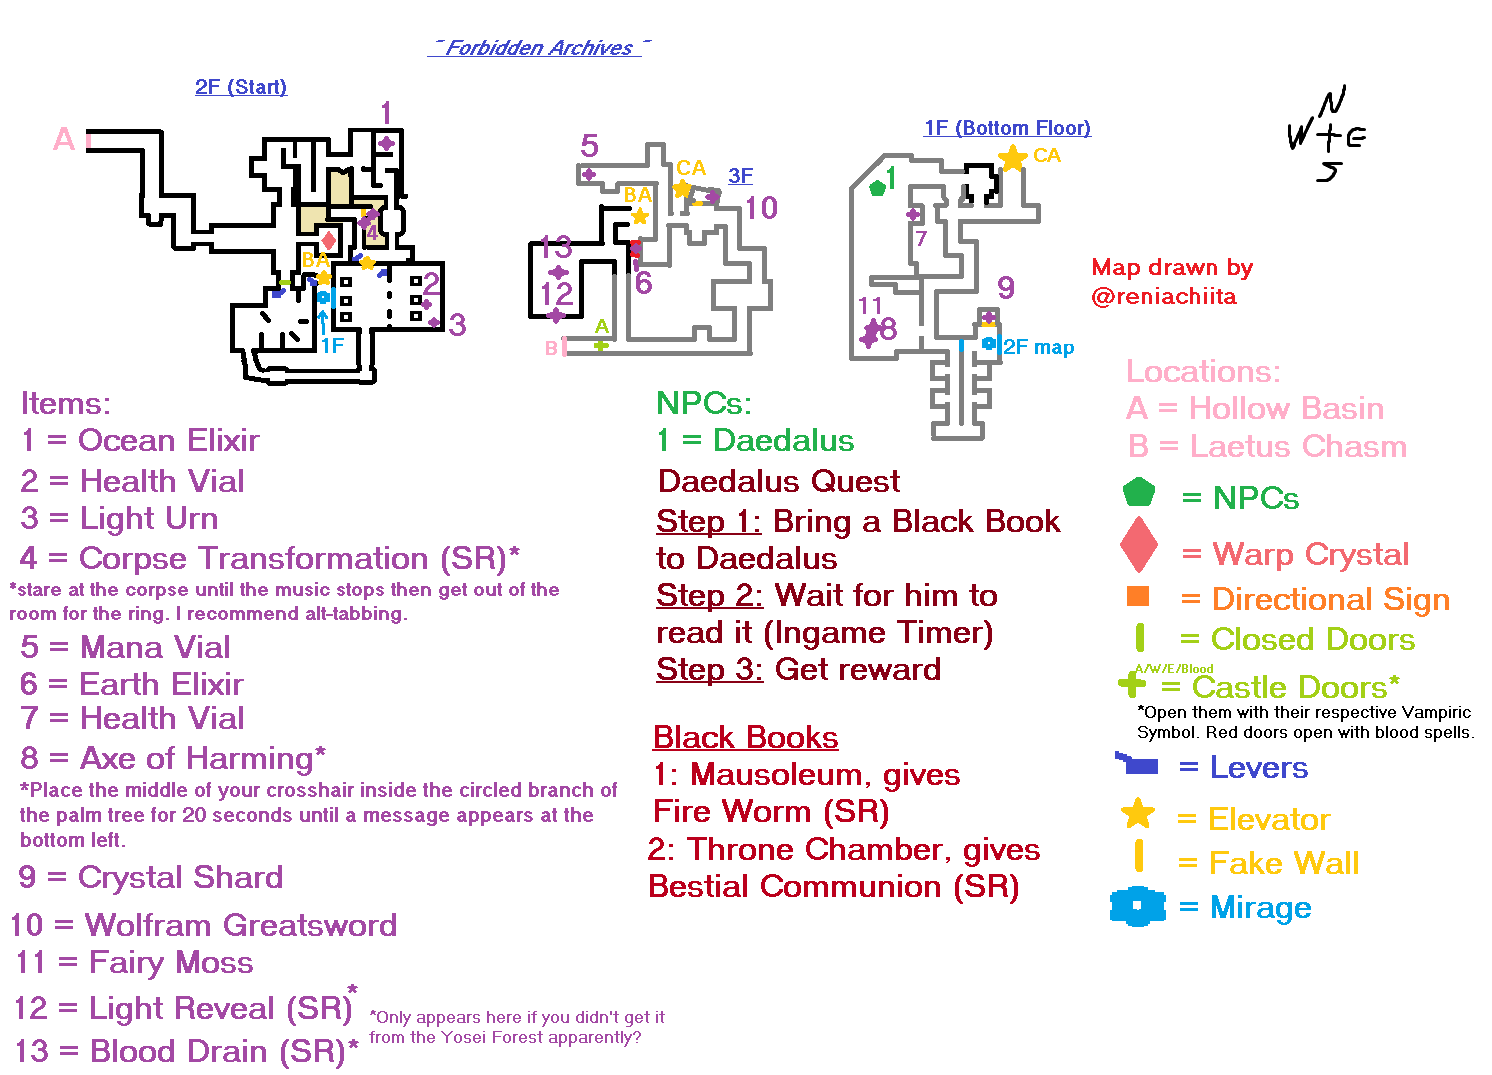 ~ Forbidden Archives ~
2F (Start)
1
A
4
BA
2
3
1F
5
CA
3F
BA
10
13
12
6
A
B
1F (Bottom Floor)
CA
1
7
9
11
8
2F map
N
W + E
S
Map drawn by
@reniachiita
Items:
1 = Ocean Elixir
2 = Health Vial
3 = Light Urn
4 = Corpse Transformation (SR)*
*stare at the corpse until the music stops then get out of the
room for the ring. I recommend alt-tabbing.
5 = Mana Vial
6 = Earth Elixir
7 = Health Vial
8 = Axe of Harming*
*Place the middle of your crosshair inside the circled branch of
the palm tree for 20 seconds until a message appears at the
bottom left.
9 = Crystal Shard
10 = Wolfram Greatsword
11 = Fairy Moss
12 = Light Reveal (SR)*
13 = Blood Drain (SR)*
*Only appears here if you didn't get it
from the Yosei Forest apparently?
NPCs:
1 = Daedalus
Daedalus Quest
Step 1: Bring a Black Book
to Daedalus
Step 2: Wait for him to
read it (Ingame Timer)
Step 3: Get reward
Black Books
1: Mausoleum, gives
Fire Worm (SR)
2: Throne Chamber, gives
Bestial Communion (SR)
Locations:
A = Hollow Basin
B = Laetus Chasm
= NPCs
= Warp Crystal
= Directional Sign
= Closed Doors
A/W/E/Blood
= Castle Doors*
*Open them with their respective Vampiric
Symbol. Red doors open with blood spells.
= Levers
= Elevator
= Fake Wall
= Mirage